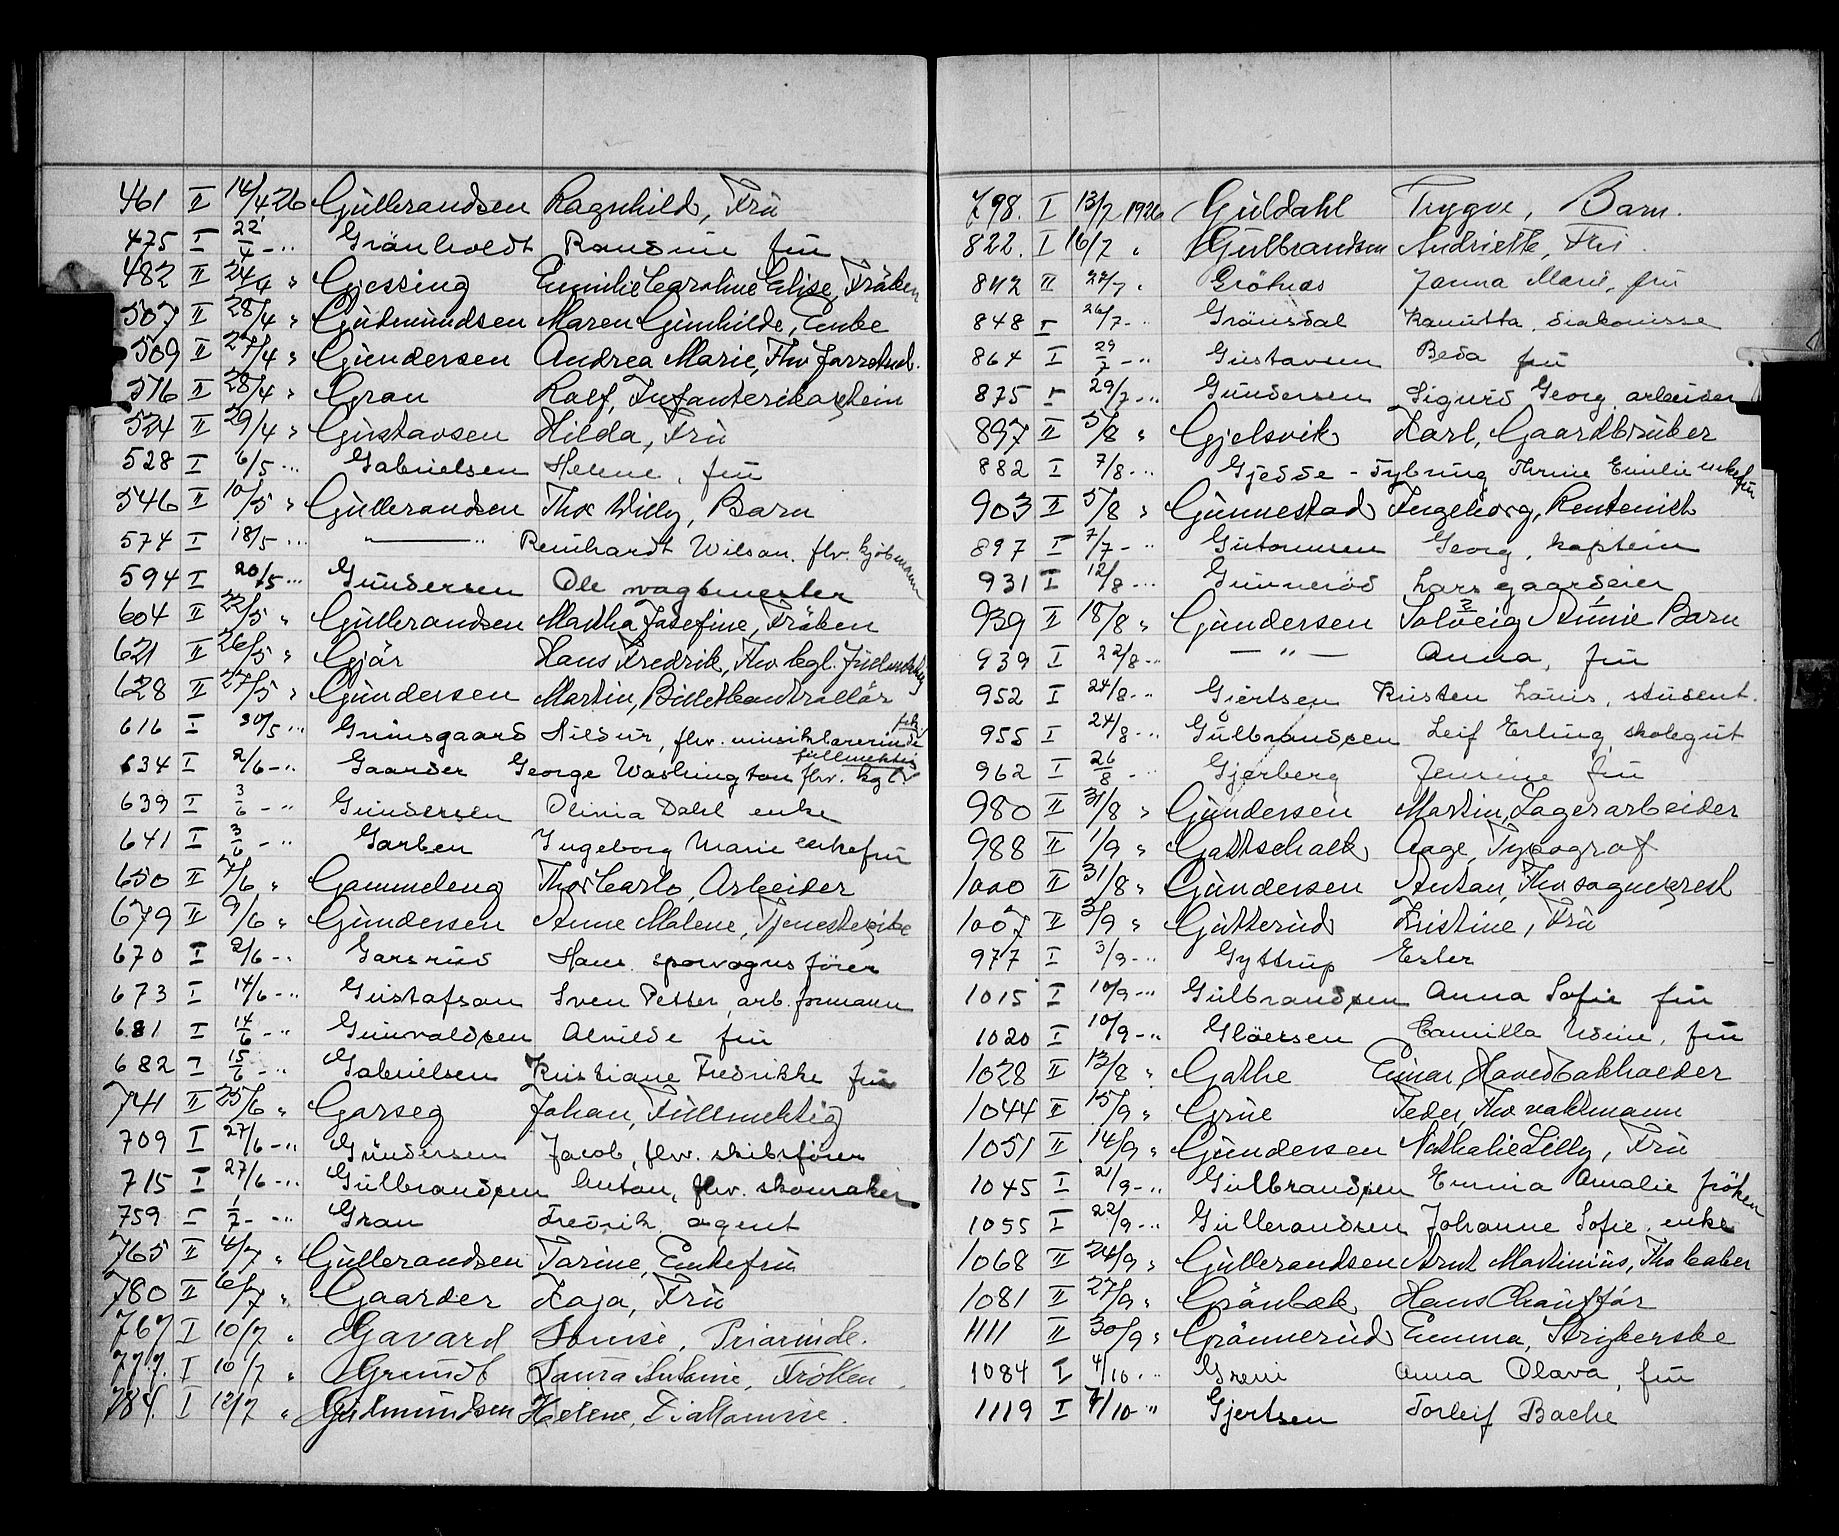 461 II 14/4 26 Gulbrandsen Ragnhild, Frü
475 I 22/4 -"- Grönholdt Randine frü
482 II 24/4 " Gjessing Emilie Caroline Elise, Fröken
507 II 28/4 " Gudmundsen Maren Gunhilde, Enke
509 II 27/4 " Gundersen Andrea Marie, Fhv
516 II 28/4 " Gran Rolf, Infanterikaptein
524 II 29/4 " Gustavsen Hilda, Frü
528 I 6/5 -"- Gabrielsen Helene, frü
546 II 10/5 " Gulbrandsen Thor Willy, Barn
574 I 18/5 -"- —"— Reinhardt Wilson. fhv. kjöbmann
594 I 20/5 -"- Gundersen Ole vagtmester
604 II 22/5 " Gulbrandsen Martha Josefine, Fröken
621 II 26/5 " Gjör Hans Fredrik, Fhv kgl. Fuldmektig
628 II 27/5 " Gundersen Martin, Billetkontrollör
616 I 30/5 -"- Grinsgaard Hildur, fhv. musiklærerinde frk
634 I 2/6 -"- Gaarder George Washington fhv. kgl. fullmektig
639 I 3/6 -"- Gundersen Olivia Dahl enke
641 I 3/6 -"- Garben Ingeborg Marie enkefrü
650 II 7/6 " Gammeleng Thor Carlo, Arbeider
679 II 9/6 " Gundersen Anne Malene, Tjenestepike
670 I 2/6 -"- Garsrud Hans. sporvognsförer
673 I 14/6 -"- Gustafson Sven Petter, arb. formann
681 I 14/6 -"- Gunvaldsen Alvilde frü
682 I 15/6 -"- Gabrielsen Kristiane Fredrikke frü
741 II 25/6 " Garseg Johan, Fullmektig
709 I 27/6 -"- Gundersen Jacob, fhv. skibsförer
715 I 27/6 -"- Gulbrandsen Anton, fhv. skomaker
759 I 1/7 -"- Gran Fredrik agent
765 II 4/7 " Gulbrandsen Tarine, Enkefrü
780 II 6/7 " Gaarder Kaja, Frü
767 I 10/7 " Gavard Louise, Priorinde.
777. I 10/7 " Grundt Laura Antonie, Fröken.
784. I 12/7 " Gudmundsen Helene, Diakonisse.
798. I 13/7 1926 Guldahl Trygve, Barn.
822. I 16/7 " Gulbrandsen Andriette, Frü.
842 II 22/7 " Grötnes Janna Marie, frü
848 I 26/7 -"- Grönsdal Kanutta, diakonisse
864 I 29/7 -"- Gustavsen Beda frü
875 I 29/7 -"- Gundersen Sigurd Georg arbeider
897 II 5/8 " Gjelsvik Karl, Gaardbruker
882 I 7/8 -"- Gjedde - Tybring Thrine Emilie enkefrü
903 II 5/8 " Gunnestad Ingeborg, Rentenist
897 I 7/7 -"- Gutormsen Georg, kaptein
931 I 12/8 -"- Gunneröd Lars gaardeier
939 II 18/8 " Gundersen Solveig 2 Annie 1 Barn
939 I 22/8 -"- — " — Anna, frü
952 I 24/8 -"- Giertsen Kristen Louis, student.
955 I 24/8 -"- Gulbrandsen Leif Erling, skolegut
962 I 26/8 -"- Gjerberg Jennine frü
980 II 31/8 " Gundersen Martin, Lagerarbeider
988 II 1/9 " Gottschalk Aage, Typograf
1000 II 31/8 " Gundersen Anton, Fhv sogneprest
1007 II 3/9 " Gutterud Kristine, Frü
977 I 3/9 -"- Gyttrup Ester
1015 I 10/9 -"- Gulbrandsen Anna Sofie frü
1020 I 10/9 -"- Glöersen Camilla, frü
1028 II 13/8 " Gathe Einar, Hovedbokholder
1044 II 15/9 " Grue Peder, Fhv vaktmann
1051 II 14/9 " Gundersen Nathalie Lilly, Frü
1045 I 21/9 -"- Gulbrandsen Emma Amalie fröken
1055 I 22/9 -"- Gulbrandsen Johanne Sofie enke
1068 II 24/9 " Gulbrandsen Arnt Martinius, Fhv
1081 II 27/9 " Grönbek Hans Chauffør
1111 II 30/9 " Grönnerud Emma, Strykerske
1084 I 4/10 -"- Greni Anna Olava, frü
1119 I 7/10 -"- Gjertsen Torleif Bache